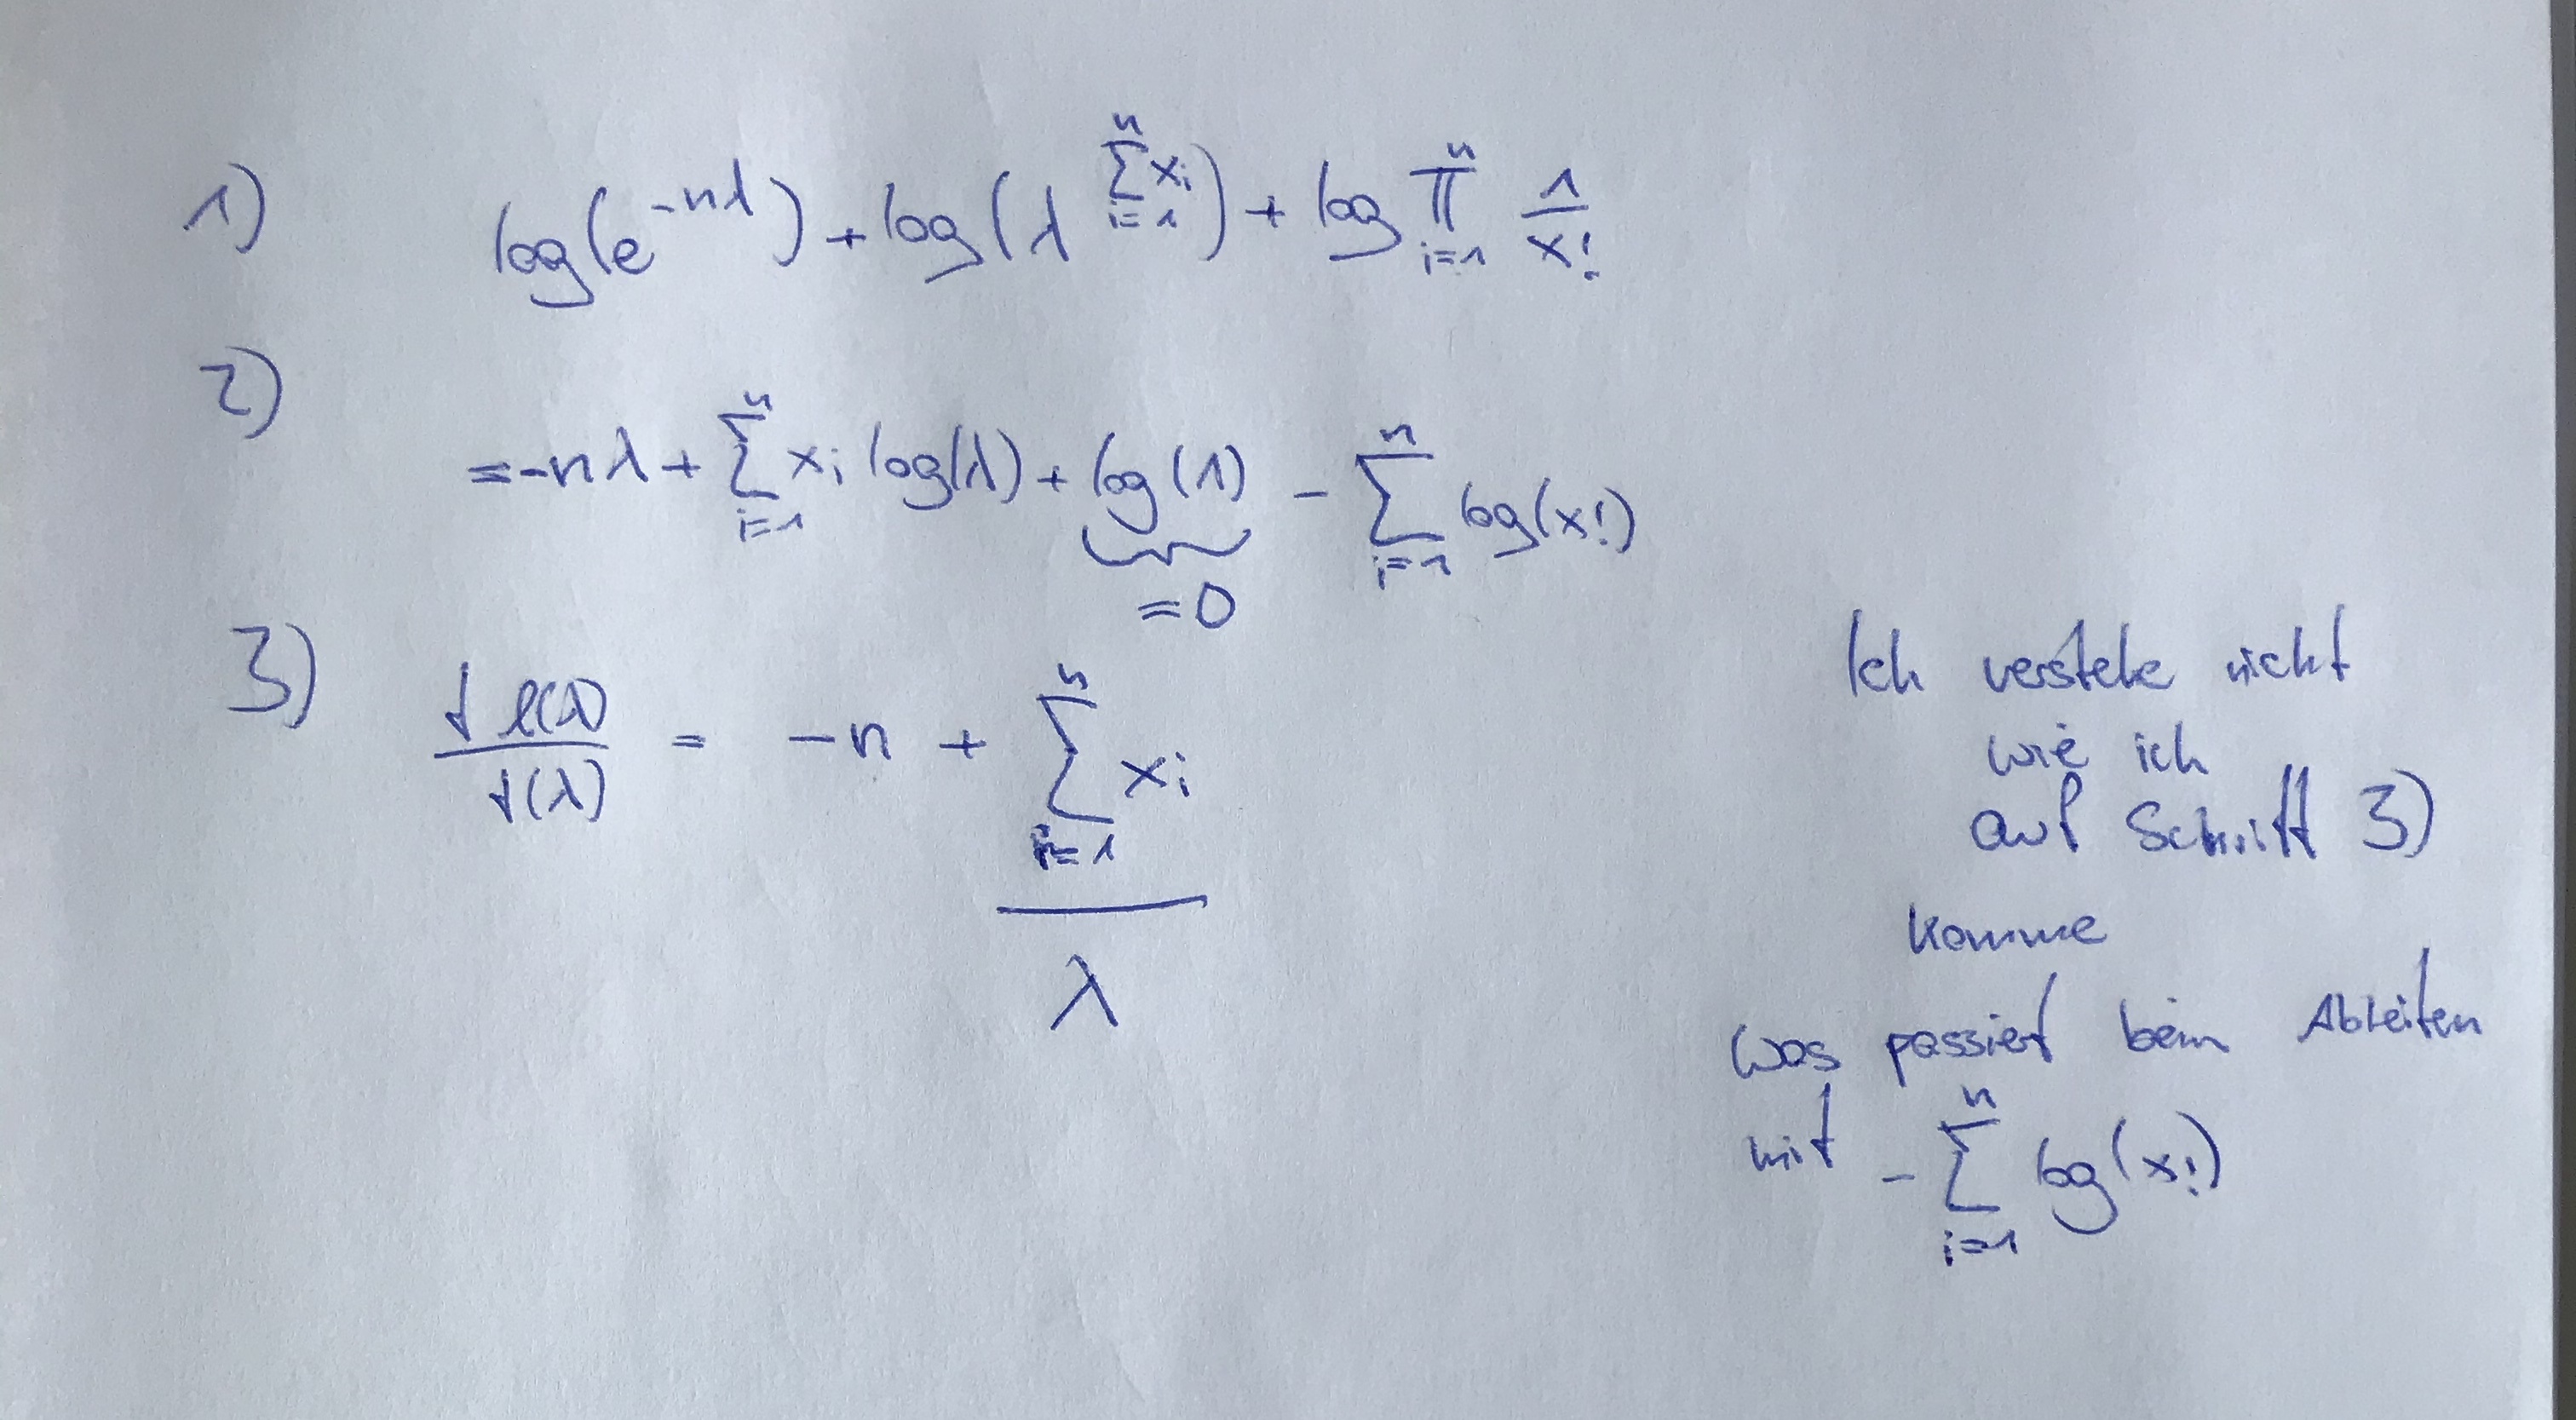 1) log(e^{-nλ}) + log(λ^{\sum_{i=1}^{n} x_i}) + log \prod_{i=1}^{n} \frac{1}{x!}
2) = -nλ + \sum_{i=1}^{n} x_i log(λ) + \underbrace{log(1)}_{=0} - \sum_{i=1}^{n} log(x!)
3) \frac{d l(λ)}{d(λ)} = -n + \frac{\sum_{i=1}^{n} x_i}{λ}
Ich verstehe nicht
wie ich
auf Schritt 3)
komme
Was passiert beim Ableiten
mit - \sum_{i=1}^{n} log(x!)